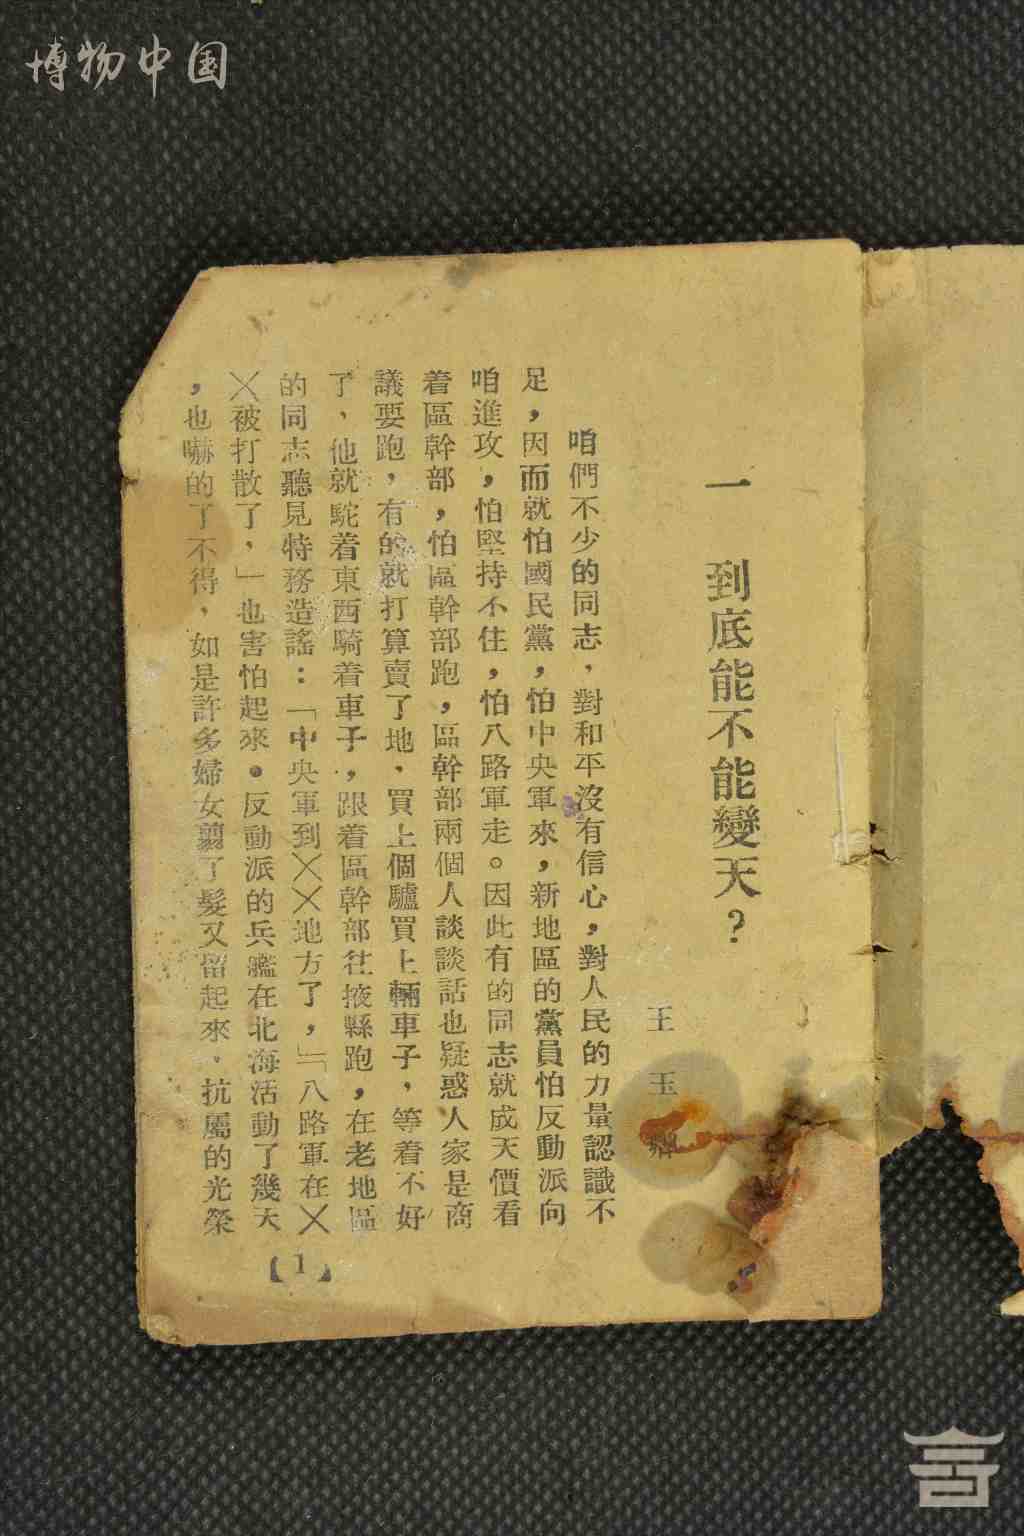 博物中国
一 到底能不能變天？
王玉
咱們不少的同志，對和平沒有信心，對人民的力量認識不
足，因而就怕國民黨，怕中央軍來，新地區的黨員怕反動派向
咱進攻，怕堅持不住，怕八路軍走。因此有的同志就成天價看
着區幹部，怕區幹部跑，區幹部兩個人談談話也疑惑人家是商
議要跑，有的就打算賣了地，買上個驢買上輛車子，等着不好
了，他就駝着東西騎着車子，跟着區幹部往掖縣跑，在老地區
的同志聽見特務造謠：「中央軍到××地方了，」「八路軍在×
×被打散了，」也害怕起來。反動派的兵艦在北海活動了幾天
，也嚇的了不得，如是許多婦女剪了髮又留起來，抗屬的光榮
【1】